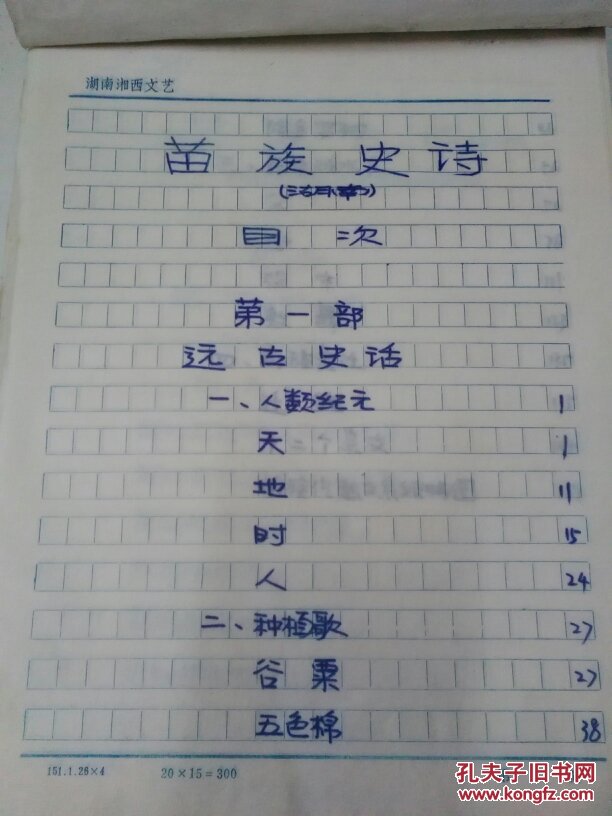 湖南湘西文艺
苗族史诗
目次
第一部
远古史话
一、人类纪元 1
天 1
地 11
时 15
人 24
二、种植歌 27
谷粟 27
五色棉 38
151.1.26×4 20×15=300
孔夫子旧书网
www.kongfz.com